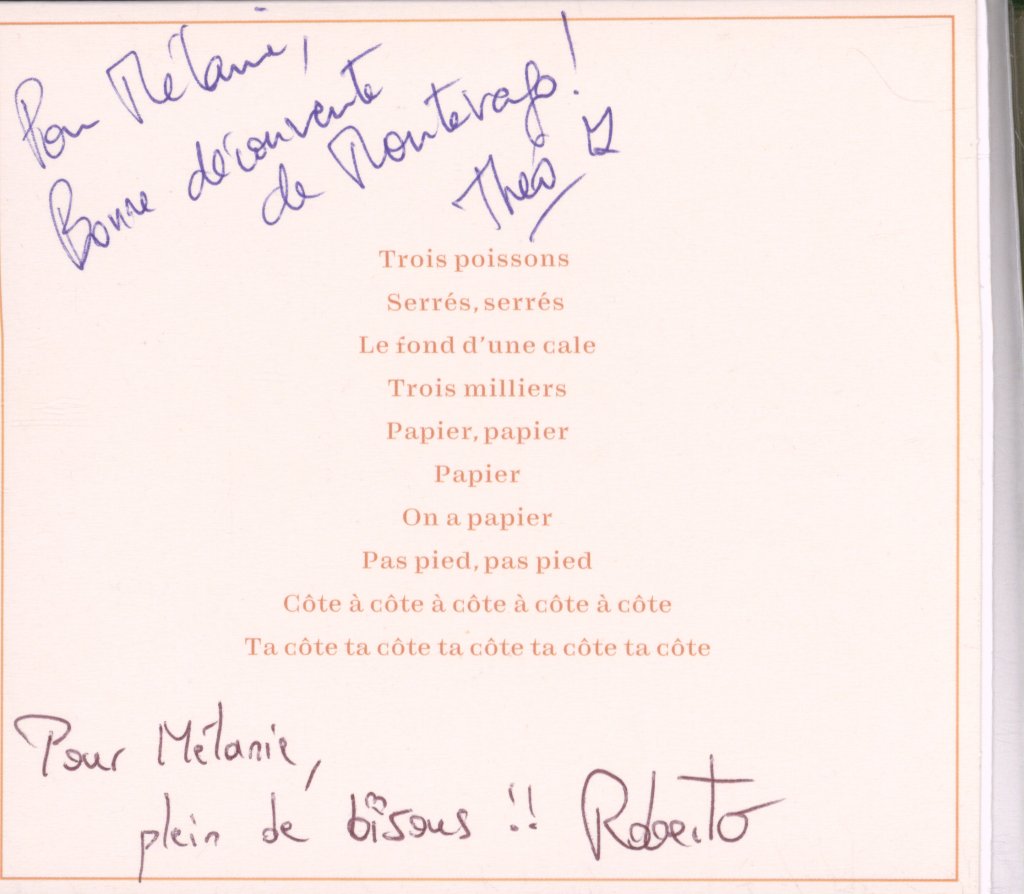 Pour Mélanie,
Bonne découverte
de Montevago!
Théo
Trois poissons
Serrés, serrés
Le fond d'une cale
Trois milliers
Papier, papier
Papier
On a papier
Pas pied, pas pied
Côte à côte à côte à côte à côte
Ta côte ta côte ta côte ta côte ta côte
Pour Mélanie,
plein de bisous !! Roberto